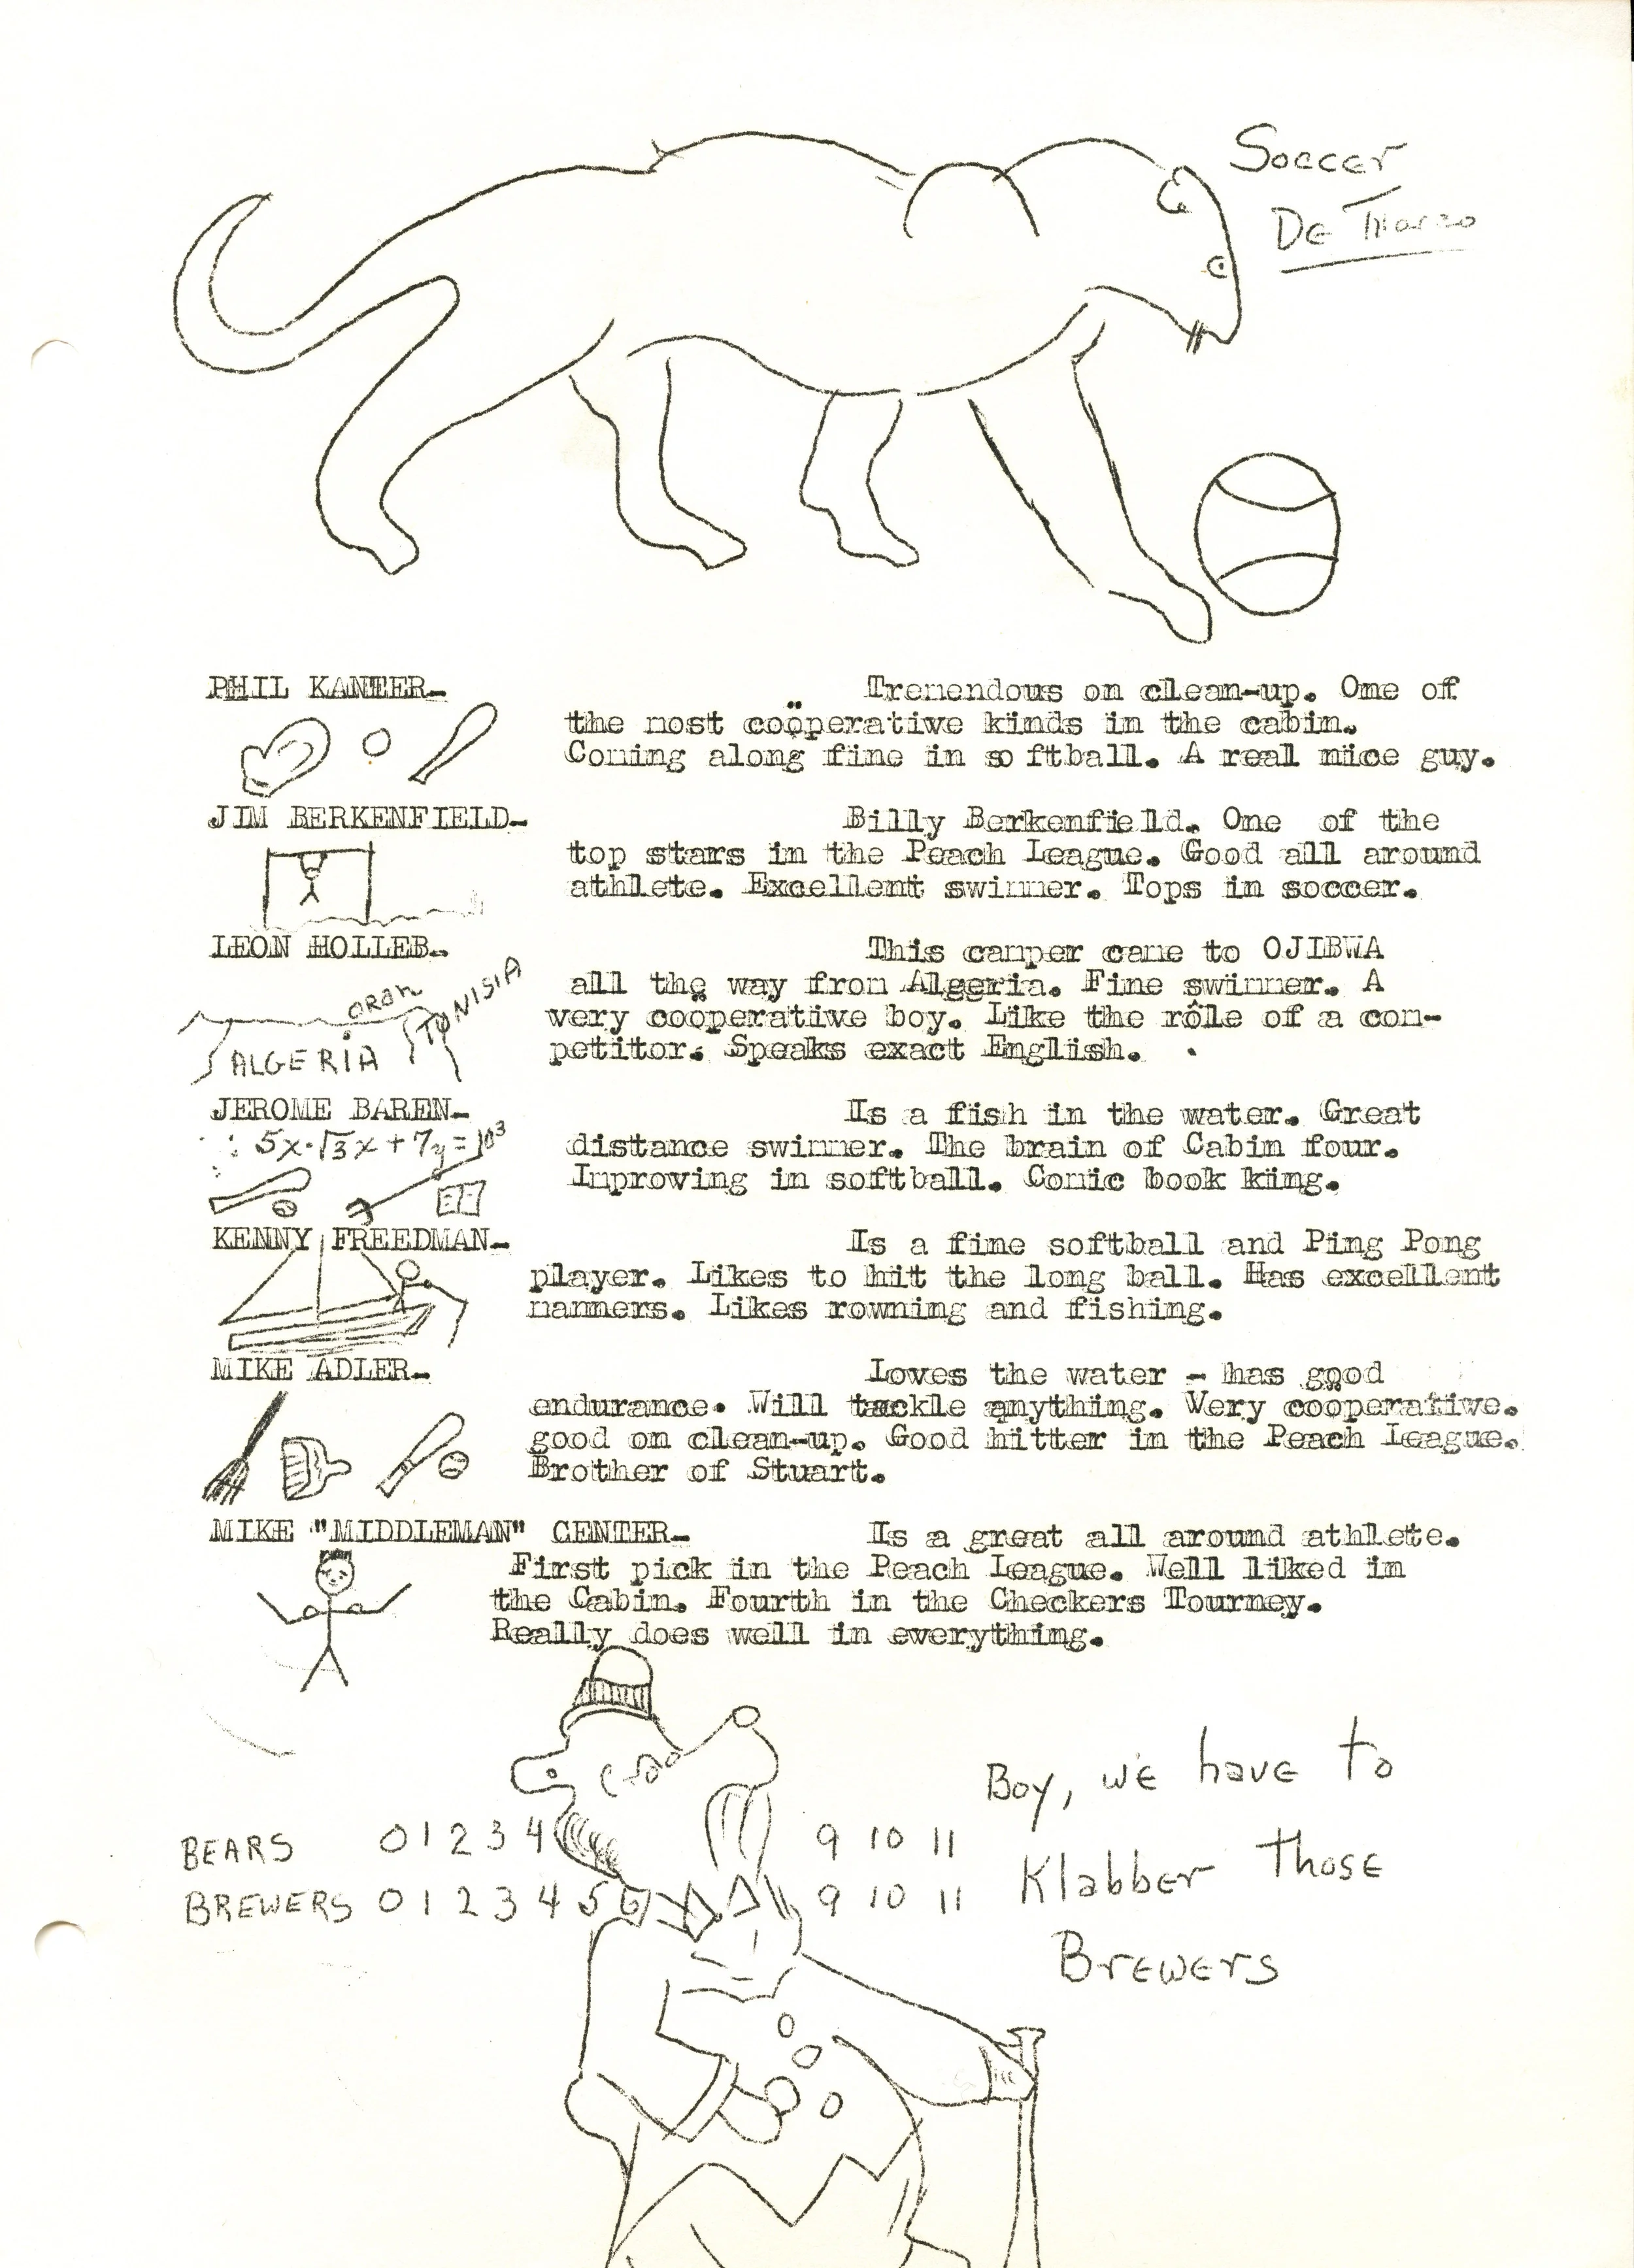 Soccer
De Tharzo
PHIL KANTER-
Tremendous on clean-up. One of
the most coöperative kinds in the cabin.
Coming along fine in so ftball. A real nice guy.
JIM BERKENFIELD-
Billy Berkenfield. One of the
top stars in the Peach League. Good all around
athlete. Excellent swimmer. Tops in soccer.
LEON HOLLEB-
This camper came to OJIBWA
all the way from Algeria. Fine swimmer. A
very cooperative boy. Like the rôle of a com-
petitor. Speaks exact English.
ORAN
TUNISIA
ALGERIA
JEROME BAREN-
Is a fish in the water. Great
distance swimmer. The brain of Cabin four.
Improving in softball. Comic book king.
5x·√3x+7y=10³
KENNY FREEDMAN-
Is a fine softball and Ping Pong
player. Likes to hit the long ball. Has excellent
manners. Likes rowning and fishing.
MIKE ADLER-
Loves the water - has good
endurance. Will tackle anything. Very cooperative.
good on clean-up. Good hitter in the Peach League.
Brother of Stuart.
MIKE "MIDDLEMAN" CENTER-
Is a great all around athlete.
First pick in the Peach League. Well liked in
the Cabin. Fourth in the Checkers Tourney.
Really does well in everything.
Boy, we have to
Klabber Those
Brewers
BEARS 0 1 2 3 4 9 10 11
BREWERS 0 1 2 3 4 5 6 9 10 11